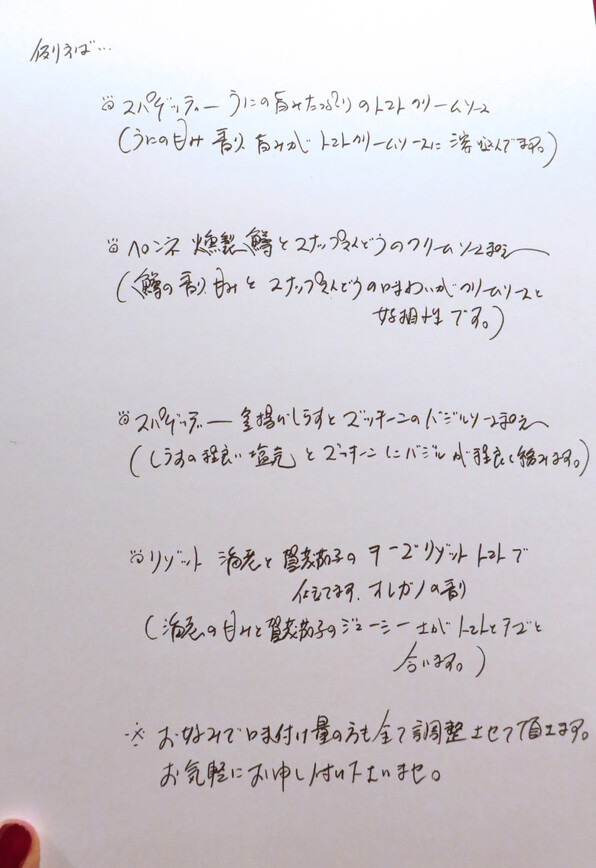 例えば…
スパゲッティー うにの旨みたっぷりのトマトクリームソース
(うにの甘み 香り、旨みが トマトクリームソースに 溶け込んでます。)
ペンネ 燻製鱒とスナップえんどうのクリームソース和え
(鱒の香り、甘みと スナップえんどうの味わいが クリームソースと
好相性です。)
スパゲッティー 釜揚げしらすとズッキーニのバジルソース和え
(しらすの程良い塩気とズッキーニにバジルが程良く絡みます。)
リゾット 海老と賀茂茄子の チーズリゾット トマトで
仕立てます、オレガノの香り
(海老の甘みと賀茂茄子のジューシーさがトマトとチーズと
合います。)
※ お好みで味付け量の方も全て調整させて頂きます。
お気軽にお申し付け下さいませ。